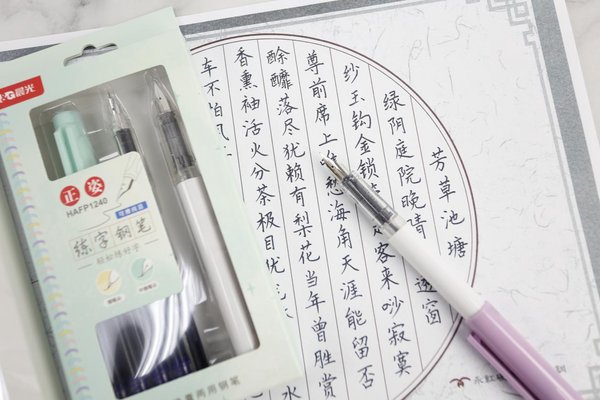 晨光
正姿
HAFP1240
练字钢笔
两用钢笔
芳草池塘
绿阴庭院晚晴透窗
纱玉钩金锁客来吵寂寞
尊前席上愁海角天涯能留否
酴醾落尽犹赖有梨花当年曾胜赏
香熏袖活火分茶极目水
车不怕风